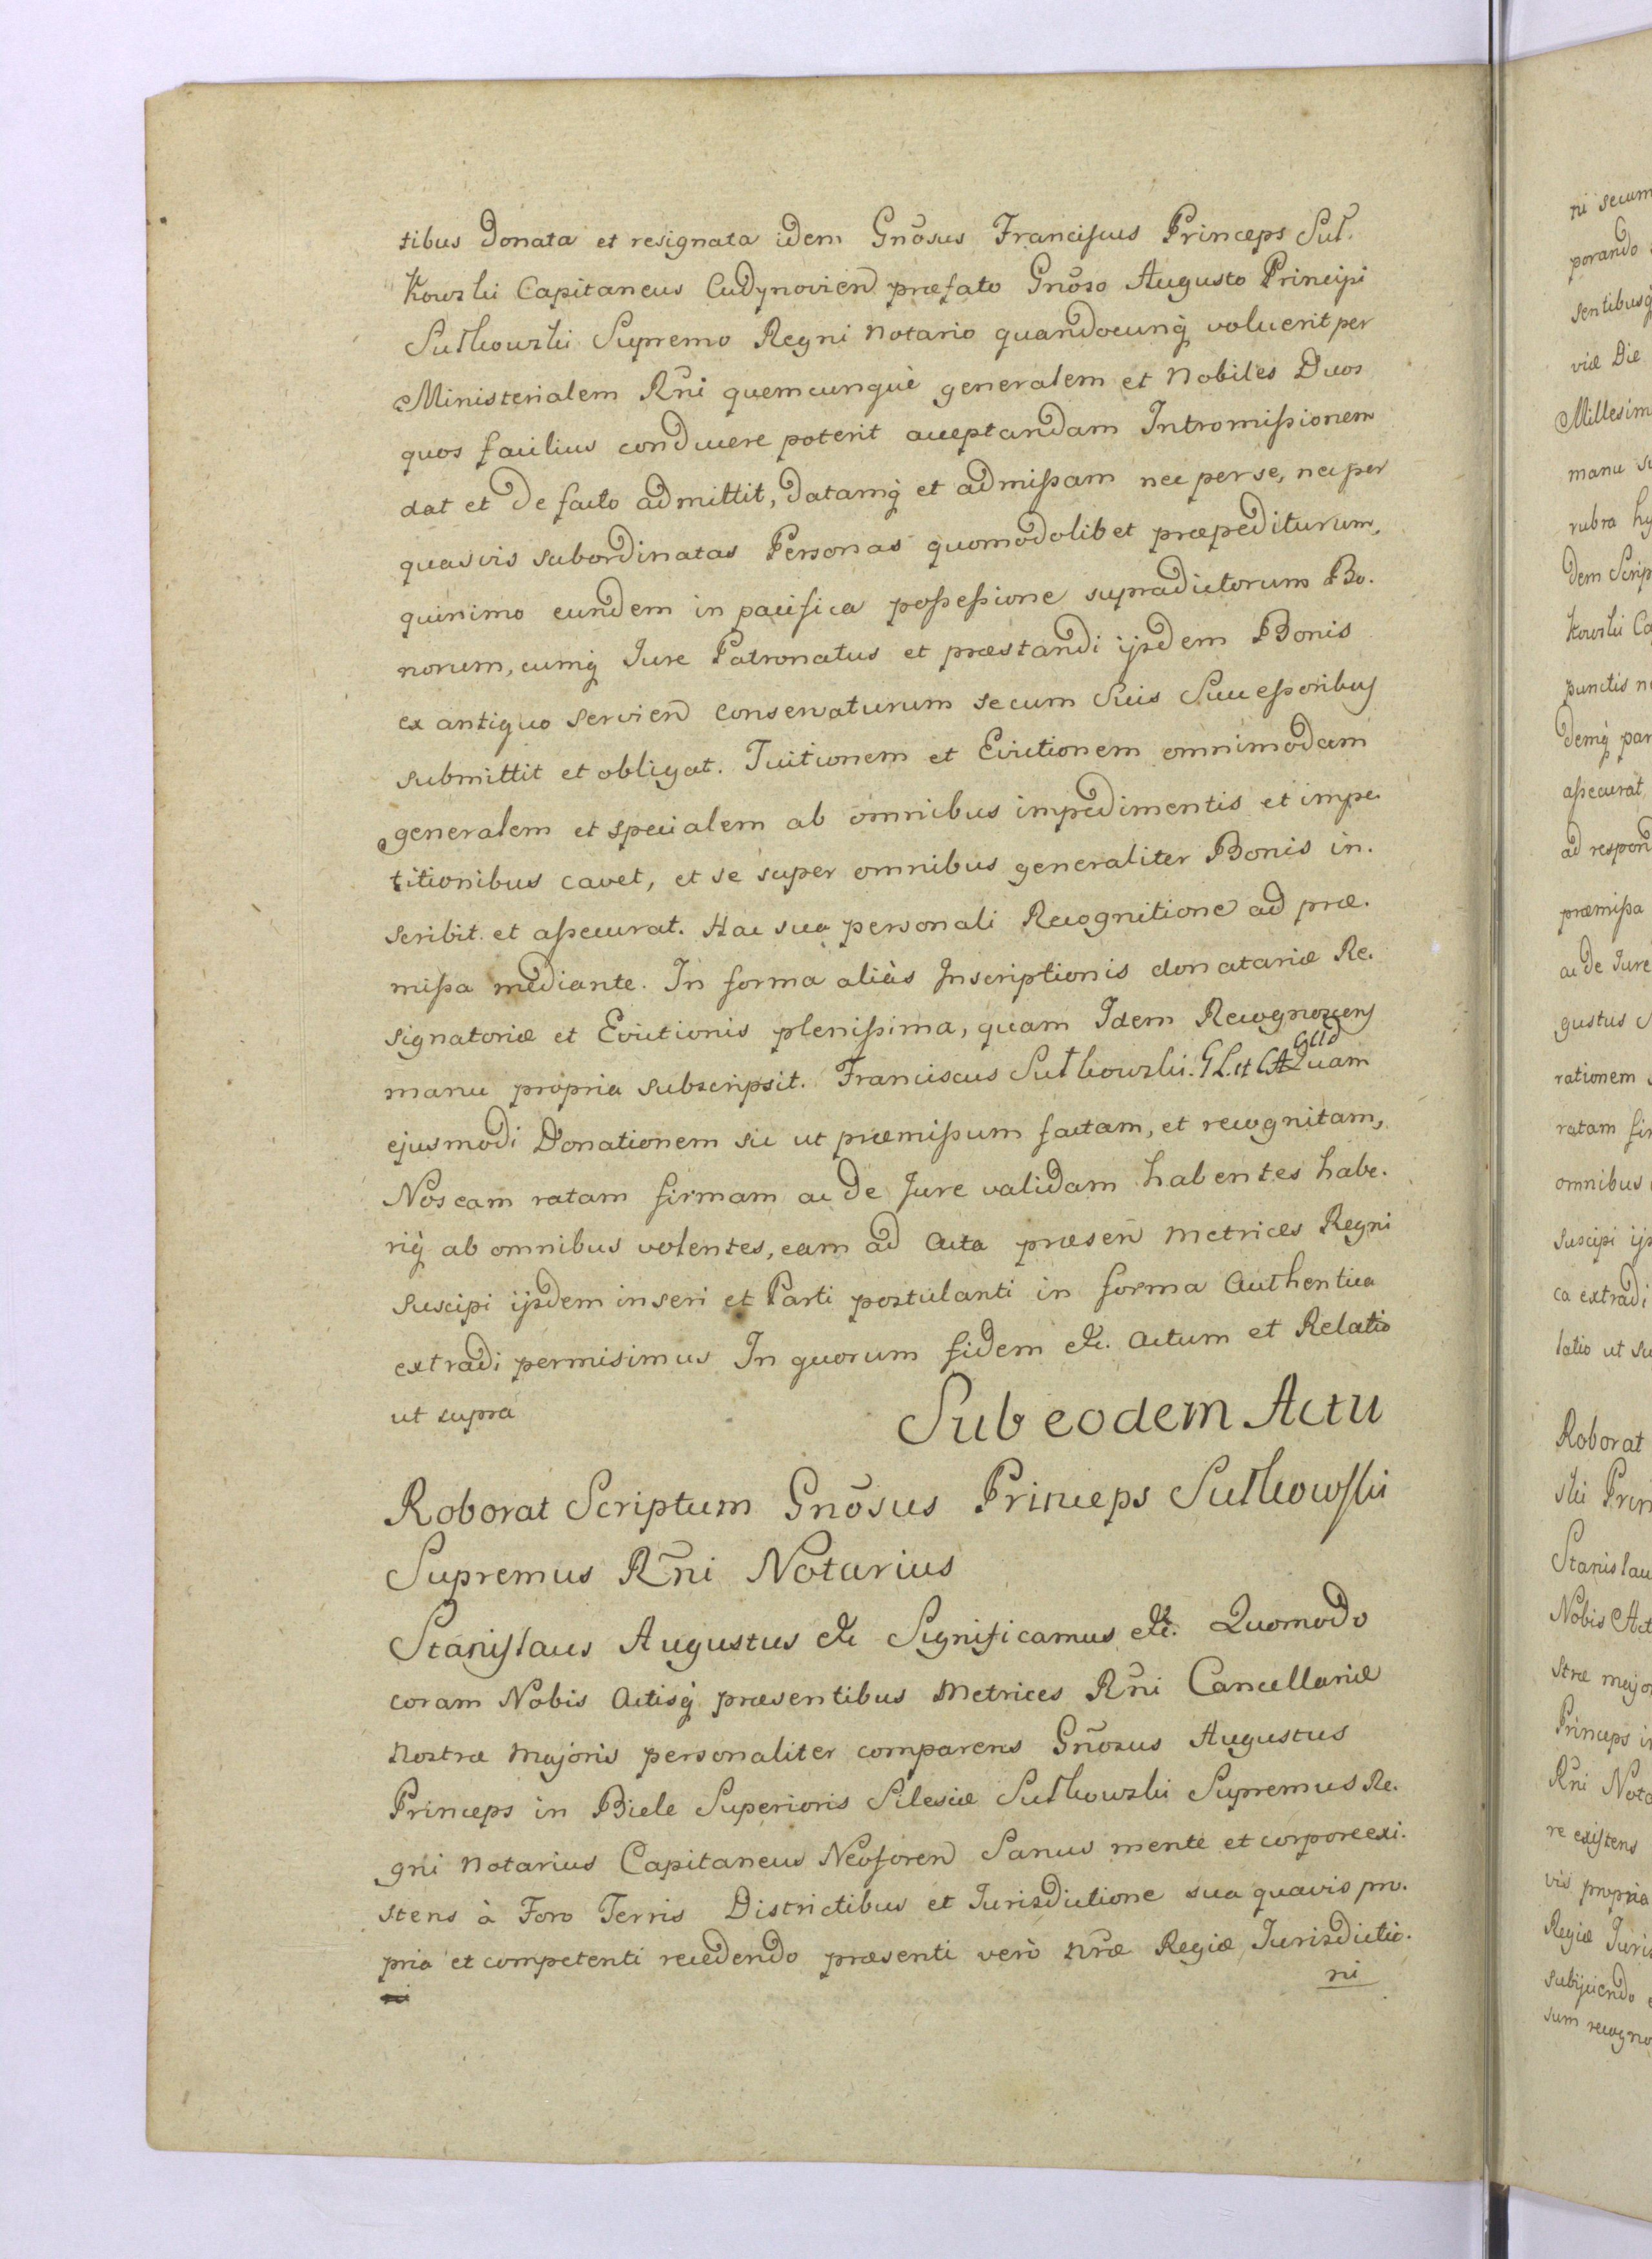 tibus donata et resignata idem Gnõsus Franciscus Princeps Suł.
kowski Capitaneus Cudynovien præfato Gnõso Augusto Principi
Sułkowski Supremo Regni Notario quandocunq̃ voluerit per
Ministerialem Rñi quemcunquè generalem et Nobiles Duos
quos facilius conducere poterit acceptandam Intromissionem
dat et de facto admittit, datamq̃ et admissam nec per se, nec per
quasvis subordinatas Personas quomodolibet præpediturum,
quinimo eundem in pacifica possessione supradictorum Bo.
norum, cumq̃ Jure Patronatus et præstandi ijsdem Bonis
ex antiquo servien conservaturum se cum Suis Successoribus
submittit et obligat. Tuitionem et Evictionem omnimodam
generalem et specialem ab omnibus impedimentis et impe.
titionibus cavet, et se super omnibus generaliter Bonis in.
scribit et assecurat. Hac sua personali Recognitione ad præ.
missa mediante. In forma aliàs Inscriptionis donatariæ Re.
signatoriæ et Evictionis plenissima, quam Idem Recognoscens
manu propria subscripsit. Franciscus Sułkowski. GL. et Quam
ejusmodi Donationem sic ut præmissum factam, et recognitam,
Nos eam ratam firmam ac de Jure validam habentes habe.
riq̃ ab omnibus volentes, eam ad Acta præsen Metrices Regni
suscipi ijsdem inseri et Parti postulanti in forma Authentica
extradi permisimus In quorum fidem etc. Actum et Relatio
ut supra
Sub eodem Actu
Roborat Scriptum Gnõsus Princeps Sułkowski
Supremus Rñi Notarius
Stanislaus Augustus etc Significamus etc. Quomodo
coram Nobis Actisq̃ præsentibus Metrices Rñi Cancellariæ
Nostræ Majoris personaliter comparens Gnõsus Augustus
Princeps in Biele Superioris Silesiæ Sułkowski Supremus Re.
gni Notarius Capitaneus Neoforen Sanus mente et corpore exi.
stens à Foro Terris Districtibus et Jurisdictione sua quavis pro.
pria et competenti recedendo præsenti verò nr̃æ Regiæ Jurisdictio.
ni